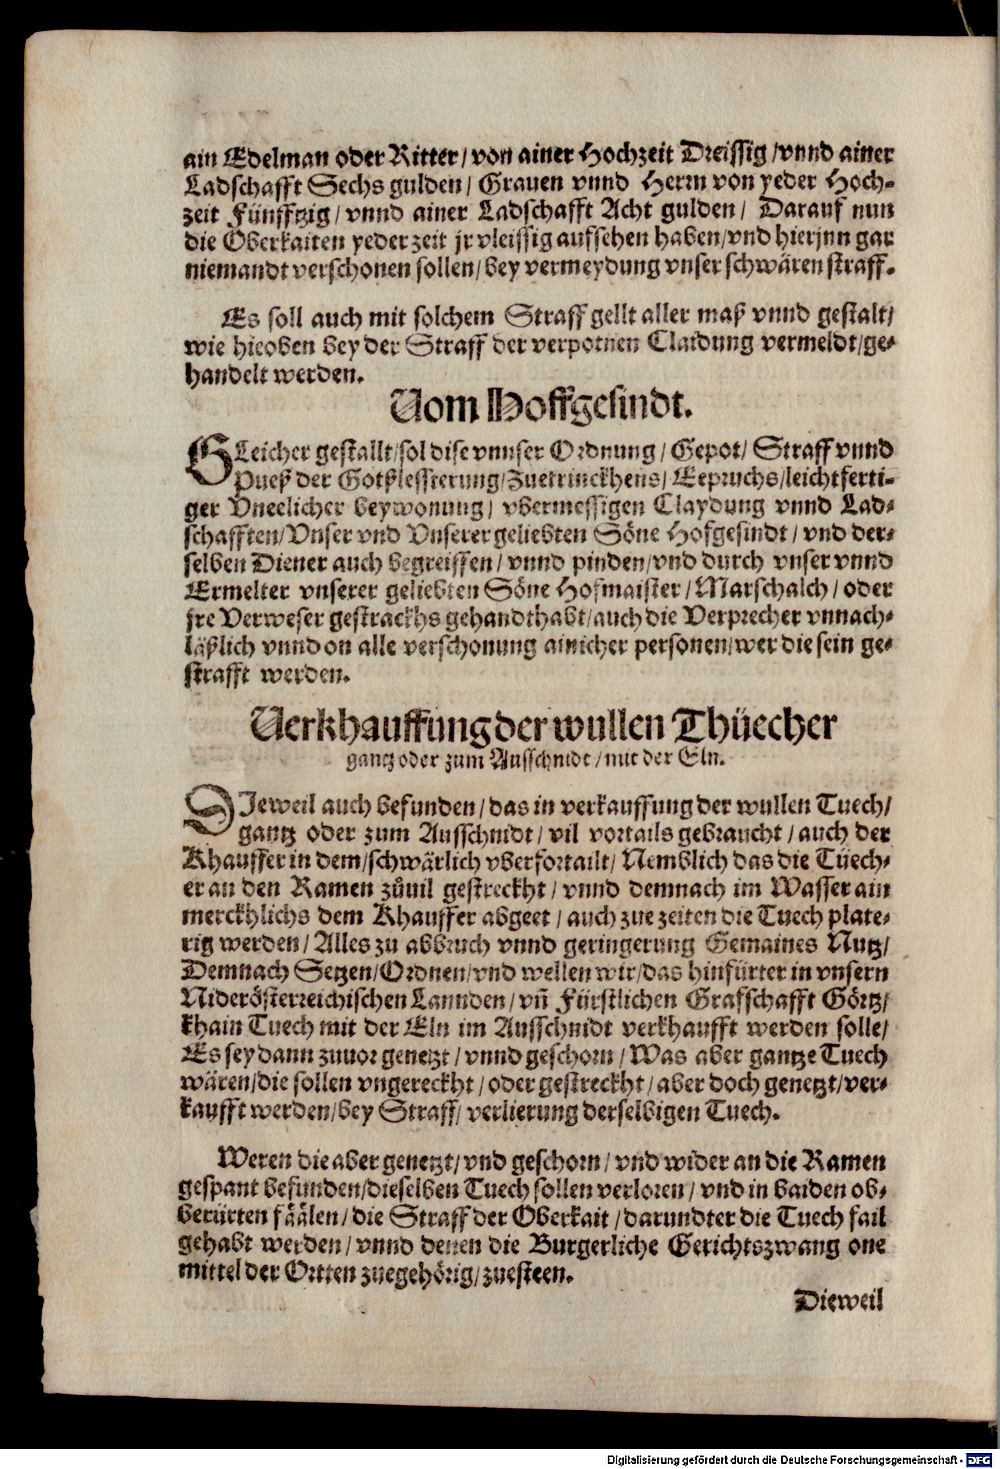 ain Edelman oder Ritter / von ainer Hochzeit Dreissig / vnnd ainer
Ladschafft Sechs gulden / Grauen vnnd Herrn von yeder Hoch-
zeit Fünfftzig / vnnd ainer Ladschafft Acht gulden / Darauf nun
die Oberkaiten yeder zeit jr vleissig aufsehen haben / vnd hierjnn gar
niemandt verschonen sollen / bey vermeydung vnser schwären straff.
Es soll auch mit solchem Straff gellt aller maß vnnd gestalt /
wie hieoben bey der Straff der verpotnen Claidung vermeldt / ge-
handelt werden.
Vom Hoffgesindt.
GLeicher gestallt / sol dise vnnser Ordnung / Gepot / Straff vnnd
Pueß der Gotßlessterung / Zuetrinckhens / Eepruchs / leichtferti-
ger Vneelicher beywonung / vbermessigen Claydung vnnd Lad-
schafften / Vnser vnd Vnserer geliebten Söne Hofgesindt / vnd der-
selben Diener auch begreiffen / vnnd pinden / vnd durch vnser vnnd
Ermelter vnserer geliebten Söne Hofmaister / Marschalch / oder
jre Verweser gestrackhs gehandthabt / auch die Verprecher vnnach-
läßlich vnnd on alle verschonung ainicher personen / wer die sein ge-
strafft werden.
Verkhauffung der wullen Thüecher
gantz oder zum Ausschnidt / mit der Eln.
DIeweil auch befunden / das in verkauffung der wullen Tuech /
gantz oder zum Ausschnidt / vil vortails gebraucht / auch der
Khauffer in dem / schwärlich vberfortailt / Nemblich das die Tüech-
er an den Ramen zůuil gestreckht / vnnd demnach im Wasser ain
merckhlichs dem Khauffer abgeet / auch zue zeiten die Tuech plate-
rig werden / Alles zu abbruch vnnd geringerung Gemaines Nutz /
Demnach Setzen / Ordnen / vnd wellen wir / das hinfürter in vnsern
Niderösterreichischen Lannden / vñ Fürstlichen Grafschafft Görtz /
khain Tuech mit der Eln im Ausschnidt verkhaufft werden solle /
Es sey dann zuuor genetzt / vnnd geschorn / Was aber gantze Tuech
wären / die sollen vngereckht / oder gestreckht / aber doch genetzt / ver-
kaufft werden / bey Straff / verlierung derselbigen Tuech.
Weren die aber genetzt / vnd geschorn / vnd wider an die Ramen
gespant befunden / dieselben Tuech sollen verloren / vnd in baiden ob-
berürten fäälen / die Straff der Oberkait / darundter die Tuech fail
gehabt werden / vnnd denen die Burgerliche Gerichtszwang one
mittel der Ortten zuegehörig / zuesteen.
Dieweil
Digitalisierung gefördert durch die Deutsche Forschungsgemeinschaft - DFG